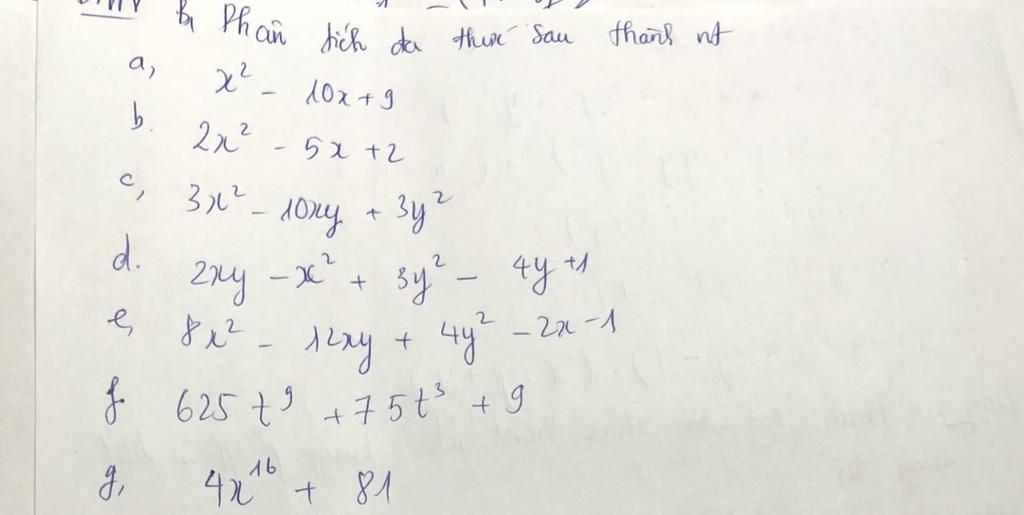 B, Phân tích đa thức sau thành nt
a, x² - 10x + 9
b. 2x² - 5x + 2
c, 3x² - 10xy + 3y²
d. 2xy - x² + 3y² - 4y + 1
e, 8x² - 12xy + 4y² - 2x - 1
f. 625t⁹ + 75t³ + 9
g, 4x¹⁶ + 81